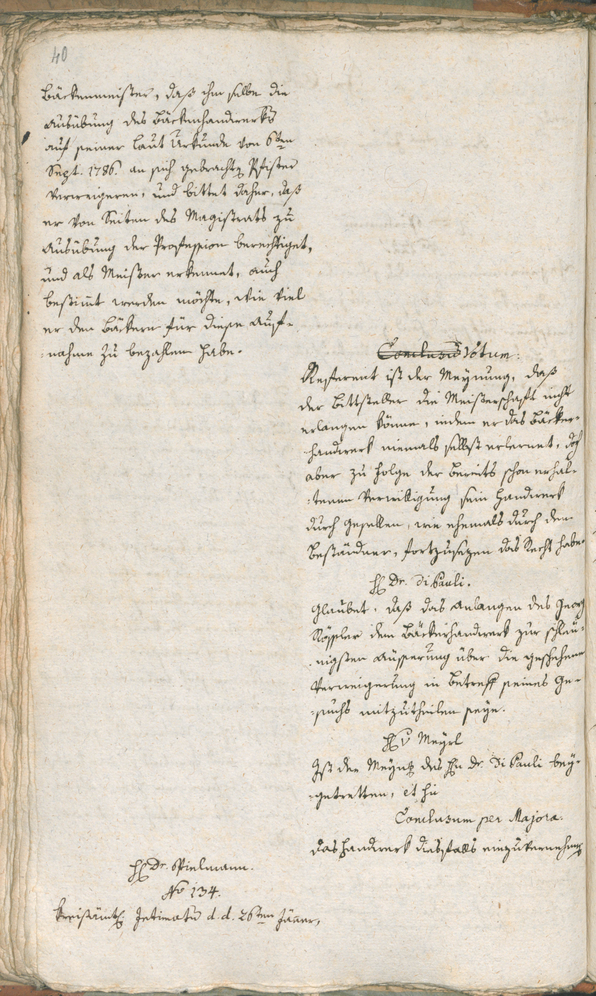 40
Bäckenmeister, daß ihm selbe die
Ausübung des Bäckenhandwerks
auf seiner laut Urkunde von 6ten
Sept. 1786. an sich gebrachten Pfister
verweigeren, und bittet daher, daß
er von Seiten des Magistrats zu
Ausübung der Profession berechtiget,
und als Meister erkennt, auch
bestimt werden möchte, wie viel
er den Bäckern für diese Auf-
nahme zu bezahlen habe.
Conclusio Votum:
Referent ist der Meynung, daß
der Bittsteller die Meisterschaft nicht
erlangen könne, indem er das Bäcker-
handwerk niemals selbst erlernet, doch
aber zu Folge der bereits schon erhal-
tenen Verwilligung sein Handwerk
durch Gesellen, wie ehemals durch den
Beständner, fortzusezen das Recht habe.
H Dr. Di Pauli.
Glaubet, daß das Anlangen des Georg
Kößler dem Bäckerhandwerk zur schleu-
nigsten Äusserung über die geschehene
Verweigerung in Betreff seines Ge-
suchs mitzutheilen seye.
H v Meyrl
Ist der Meynung des Hn Dr. Di Pauli bey-
getretten, et hin
Conclusum per Majora.
das Handwerk diesfalls einzuvernehmen
H Dr. Spielmann.
No 134.
Kreisämtl Intimatum d. d. 26ten Jäner,